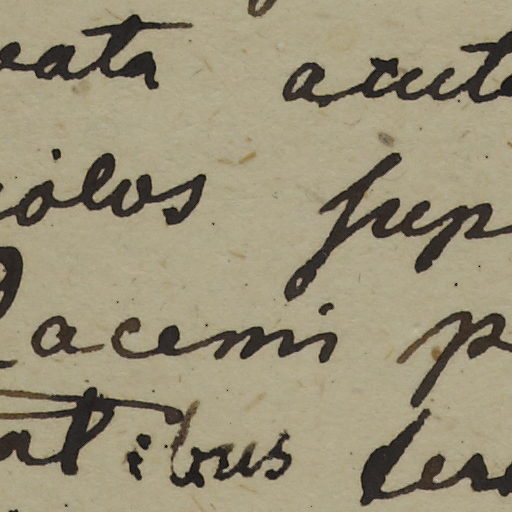 eata acuta
iolos sup
Racemi p
atibus ter